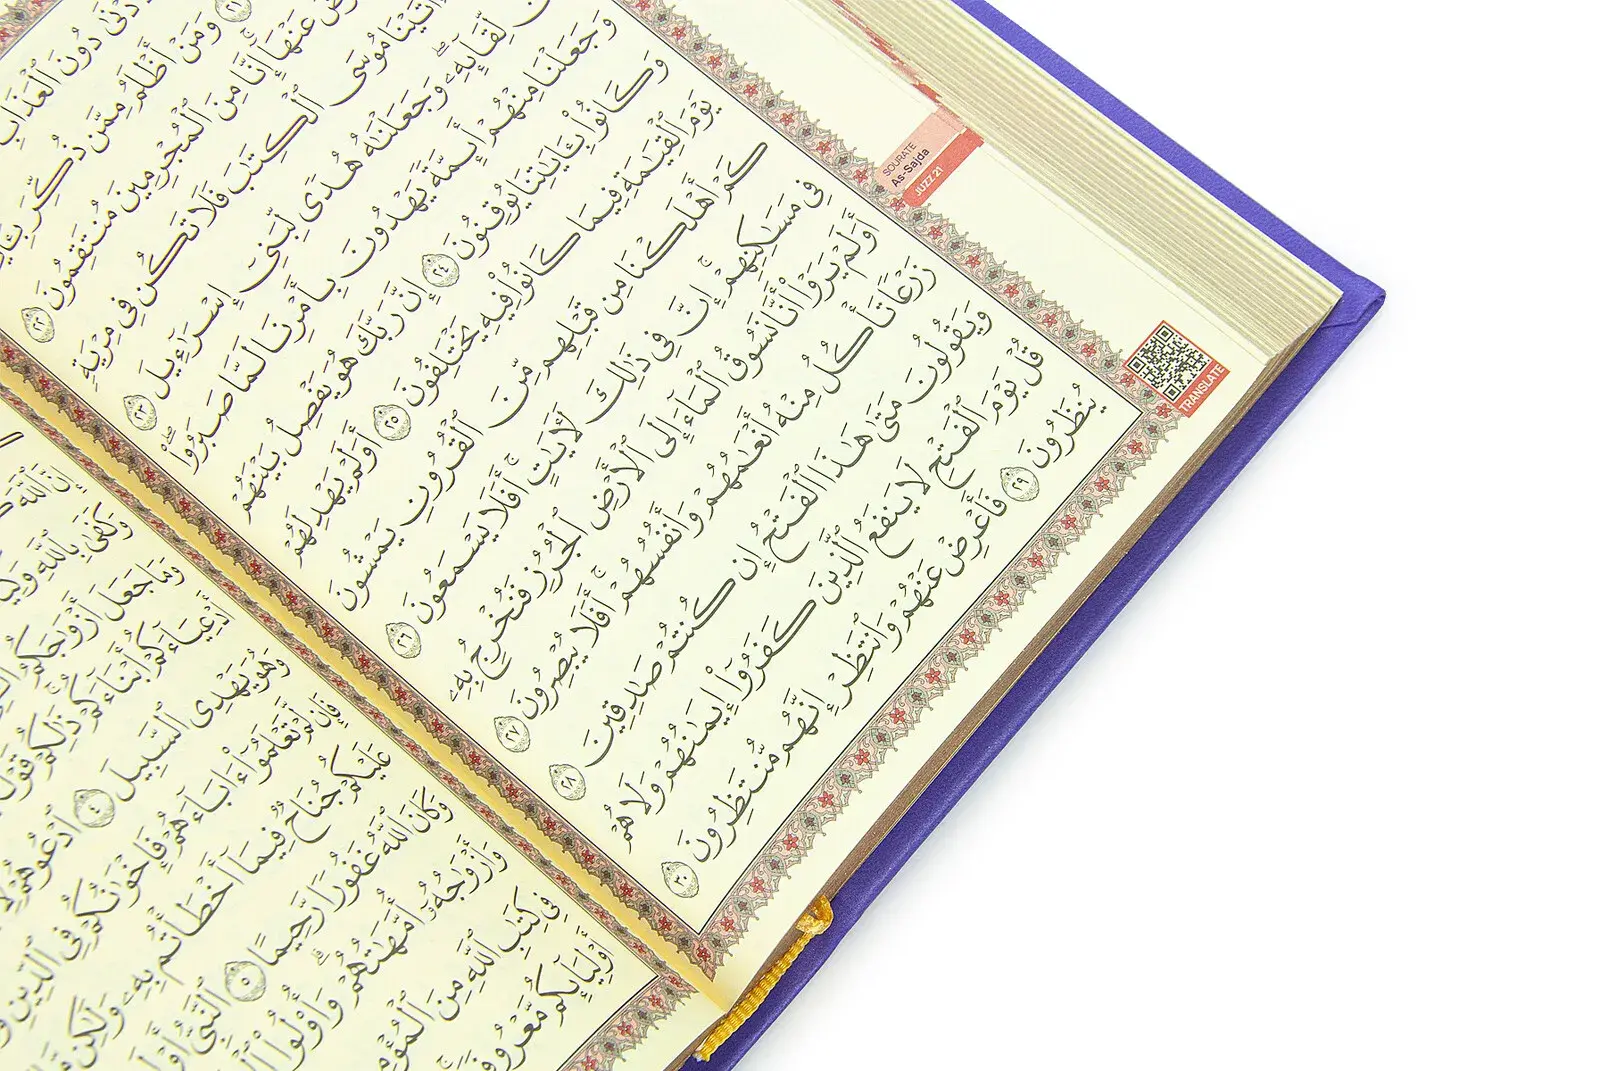 دُونَ ٱلْعَذَابِ
٢١ وَمَنْ أَظْلَمُ مِمَّن ذُكِّرَ
عَنْهَآ إِنَّا مِنَ ٱلْمُجْرِمِينَ مُنتَقِمُونَ ٢٢
ءَاتَيْنَا مُوسَى ٱلْكِتَٰبَ فَلَا تَكُن فِى مِرْيَةٍ
لِّقَآئِهِۦ ۖ وَجَعَلْنَٰهُ هُدًى لِّبَنِىٓ إِسْرَٰٓءِيلَ ٢٣
وَجَعَلْنَا مِنْهُمْ أَئِمَّةً يَهْدُونَ بِأَمْرِنَا لَمَّا صَبَرُوا۟ ۖ
وَكَانُوا۟ بِـَٔايَٰتِنَا يُوقِنُونَ ٢٤ إِنَّ رَبَّكَ هُوَ يَفْصِلُ بَيْنَهُمْ
يَوْمَ ٱلْقِيَٰمَةِ فِيمَا كَانُوا۟ فِيهِ يَخْتَلِفُونَ ٢٥ أَوَلَمْ يَهْدِ لَهُمْ
كَمْ أَهْلَكْنَا مِن قَبْلِهِم مِّنَ ٱلْقُرُونِ يَمْشُونَ
فِى مَسَٰكِنِهِمْ ۚ إِنَّ فِى ذَٰلِكَ لَءَايَٰتٍ ۖ أَفَلَا يَسْمَعُونَ ٢٦
أَوَلَمْ يَرَوْا۟ أَنَّا نَسُوقُ ٱلْمَآءَ إِلَى ٱلْأَرْضِ ٱلْجُرُزِ فَنُخْرِجُ بِهِۦ
زَرْعًا تَأْكُلُ مِنْهُ أَنْعَٰمُهُمْ وَأَنفُسُهُمْ ۖ أَفَلَا يُبْصِرُونَ ٢٧
وَيَقُولُونَ مَتَىٰ هَٰذَا ٱلْفَتْحُ إِن كُنتُمْ صَٰدِقِينَ ٢٨
قُلْ يَوْمَ ٱلْفَتْحِ لَا يَنفَعُ ٱلَّذِينَ كَفَرُوٓا۟ إِيمَٰنُهُمْ وَلَا هُمْ
يُنظَرُونَ ٢٩ فَأَعْرِضْ عَنْهُمْ وَٱنتَظِرْ إِنَّهُم مُّنتَظِرُونَ ٣٠
SOURATE
As-Sajda
JUZZ 21
TRANSLATE
إِنَّ ٱللَّهَ
وَكَفَىٰ بِٱللَّهِ
وَمَا جَعَلَ أَزْوَٰجَكُمُ
أَدْعِيَآءَكُمْ أَبْنَآءَكُمْ ۚ ذَٰلِكُمْ
وَهُوَ يَهْدِى ٱلسَّبِيلَ ٤ ٱدْعُوهُمْ
فَإِن لَّمْ تَعْلَمُوٓا۟ ءَابَآءَهُمْ فَإِخْوَٰنُكُمْ فِى ٱلدِّينِ
عَلَيْكُمْ جُنَاحٌ فِيمَآ أَخْطَأْتُم بِهِۦ وَلَٰكِن
وَكَانَ ٱللَّهُ غَفُورًا رَّحِيمًا ٥ ٱلنَّبِىُّ
وَأَزْوَٰجُهُۥٓ أُمَّهَٰتُهُمْ ۗ وَأُو۟لُوا۟
فِى كِتَٰبِ ٱللَّهِ مِنَ
أَوْلِيَآئِكُم